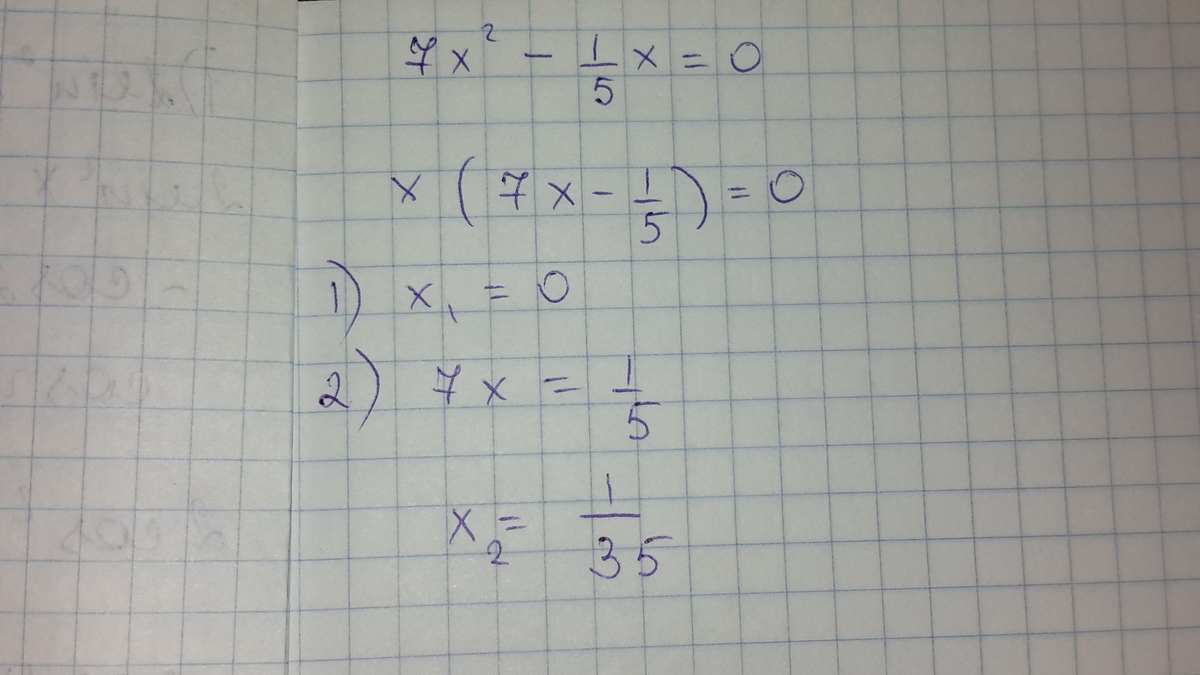 7x² - 1/5 x = 0
x (7x - 1/5) = 0
1) x₁ = 0
2) 7x = 1/5
x₂ = 1/35